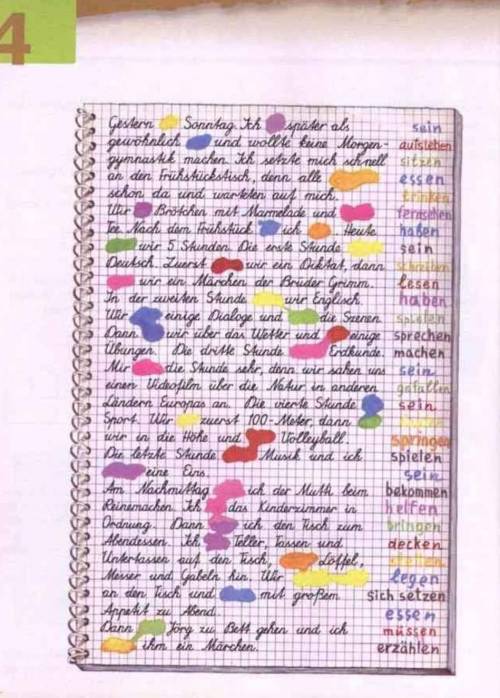 4
Gestern Sonntag. Ich später als sein
gewöhnlich und wollte keine Morgen- aufstehen
gymnastik machen. Ich setzte mich schnell sitzen
an den Frühstückstisch, denn alle essen
schon da und warteten auf mich. trinken
Wir Brötchen mit Marmelade und fernsehen
Tee. Nach dem Frühstück ich Heute haben
wir 5 Stunden. Die erste Stunde sein
Deutsch. Zuerst wir ein Diktat, dann schreiben
wir ein Märchen der Brüder Grimm. lesen
In der zweiten Stunde wir Englisch. haben
Wir einige Dialoge und die Szenen. spielen
Dann wir über das Wetter und einige sprechen
Übungen. Die dritte Stunde Erdkunde. machen
Mir die Stunde sehr, denn wir sahen uns sein
einen Videofilm über die Natur in anderen gefallen
Ländern Europas an. Die vierte Stunde sein
Sport. Wir zuerst 100-Meter, dann
wir in die Höhe und Volleyball. springen
Die letzte Stunde Musik und ich spielen
eine Eins. sein
Am Nachmittag ich der Mutti beim bekommen
Reinemachen. Ich das Kinderzimmer in helfen
Ordnung. Dann ich den Tisch zum bringen
Abendessen. Ich Teller, Tassen und decken
Untertassen auf den Tisch, Löffel, stellen
Messer und Gabeln hin. Wir legen
an den Tisch und mit großem sich setzen
Appetit zu Abend. essen
Dann Jörg zu Bett gehen und ich müssen
ihm ein Märchen. erzählen